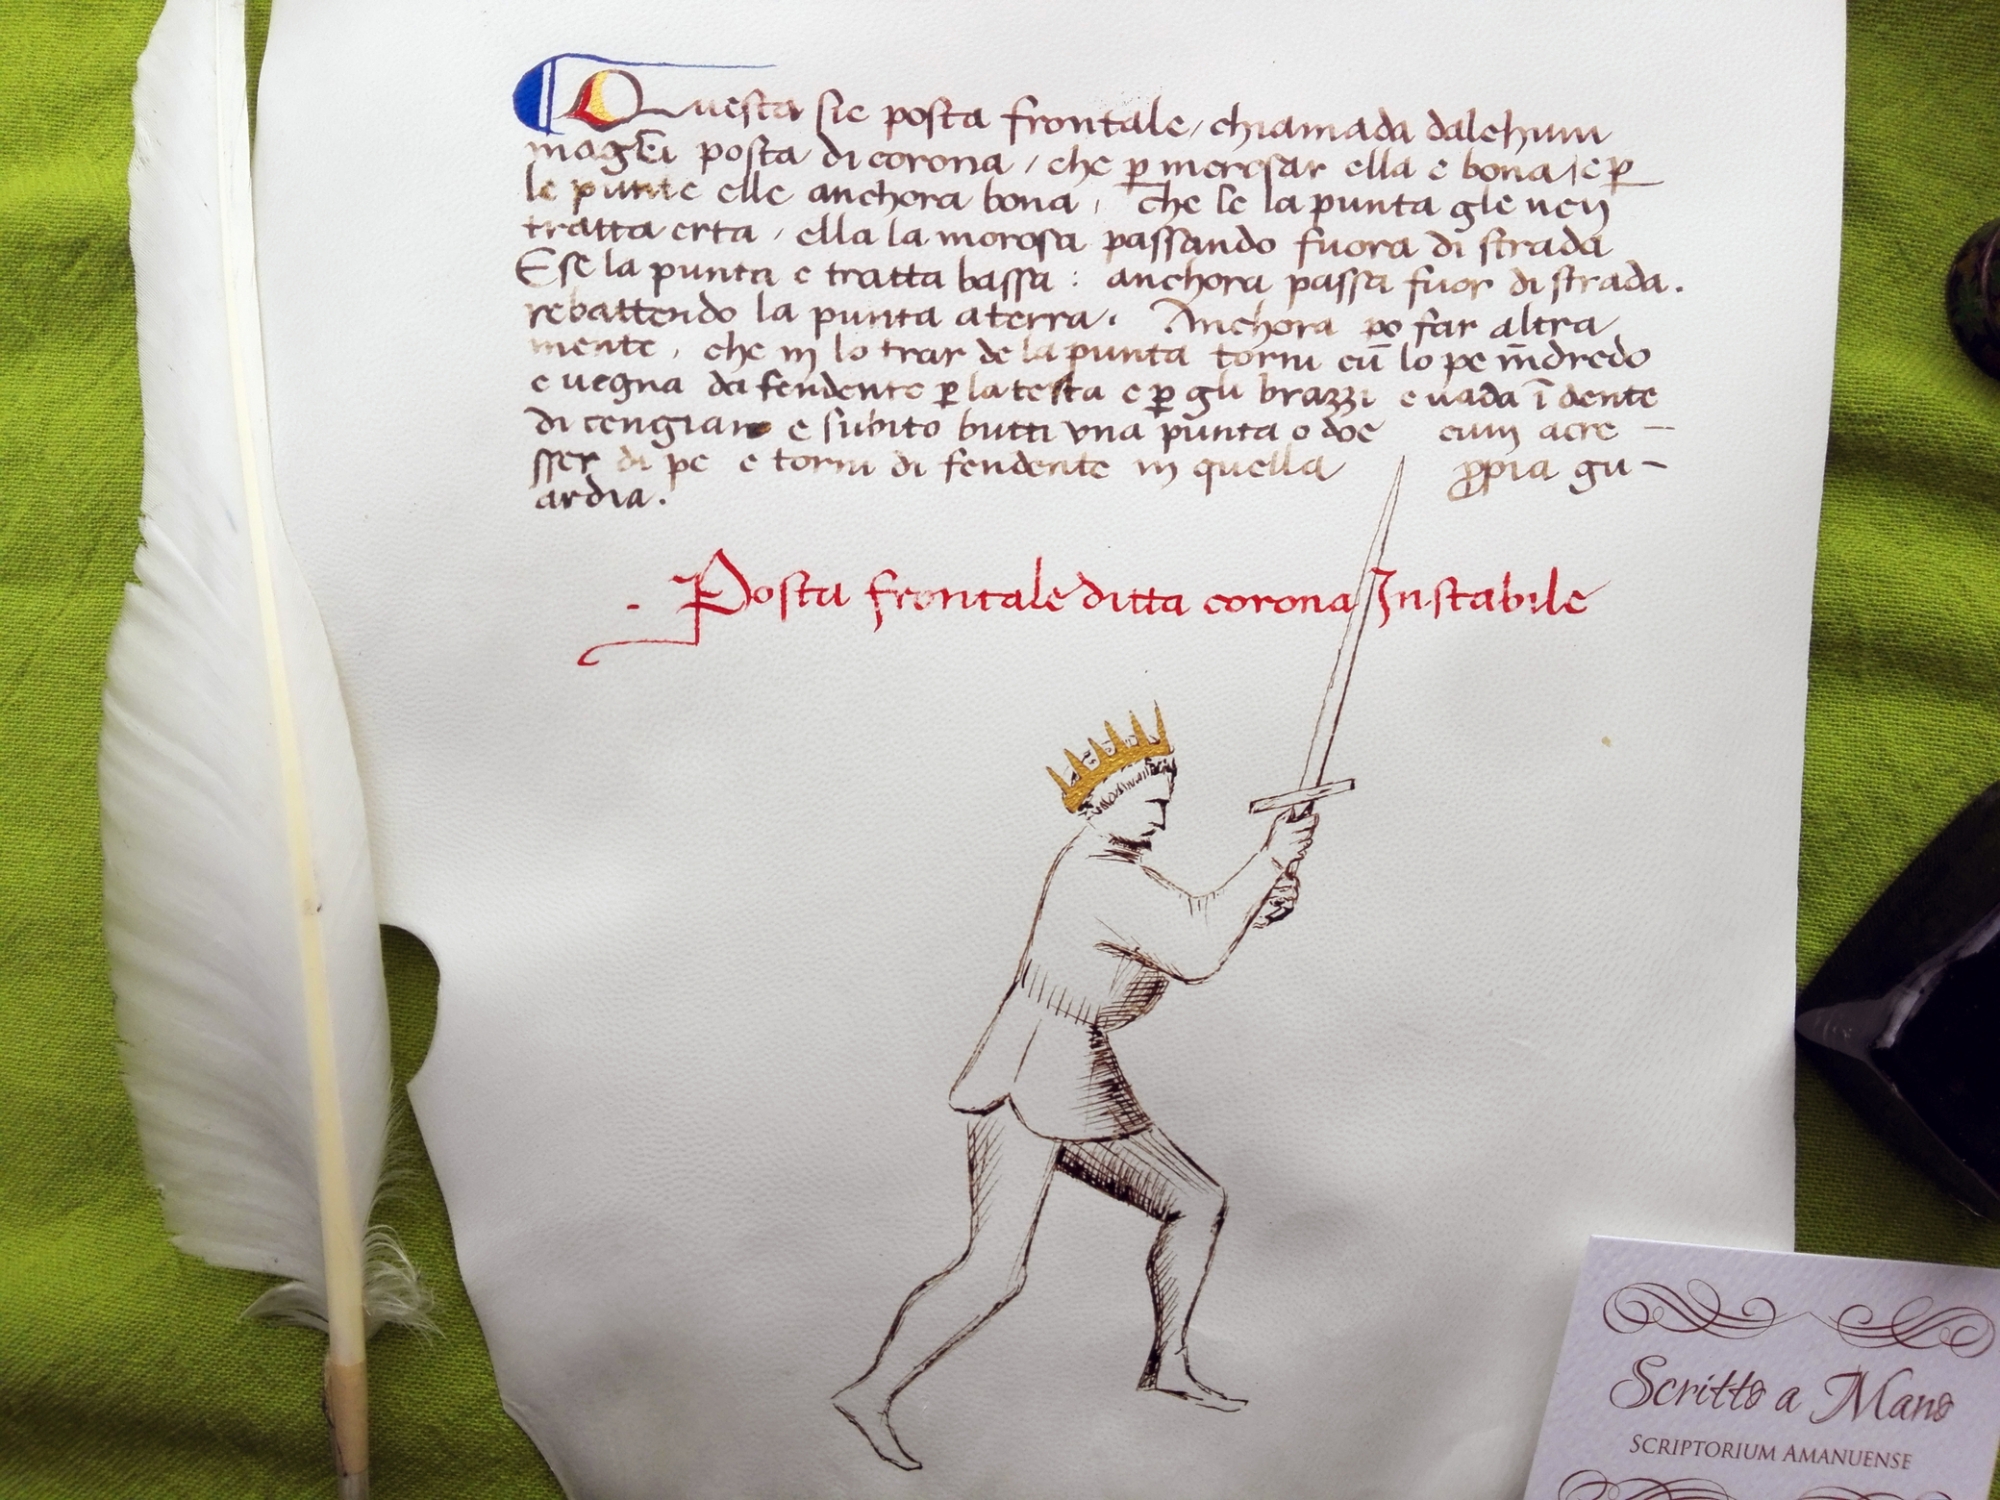 Questa sie posta frontale / chiamada dalchum
magistri posta di corona / che p̱ mcrosar ella e bona / e p̱
le punte elle anchora bona / che se la punta gle ven
tratta erta / ella la incrosa passando fuora di strada
E se la punta e tratta bassa : anchora passa fuor di strada.
rebattendo la punta a terra. Anchora po far altra
mente, che in lo trar de la punta torni cū lo pe indredo
e uegna da fendente p̱ la testa e p̱ gli brazzi e uada ī dente
di cengiaro e subito butti una punta o doe cum acre –
sser di pe e torni di fendente in quella ꝓpia gu –
ardia.
Posta frontale ditta corona Instabile
Scritto a Mano
SCRIPTORIUM AMANUENSE